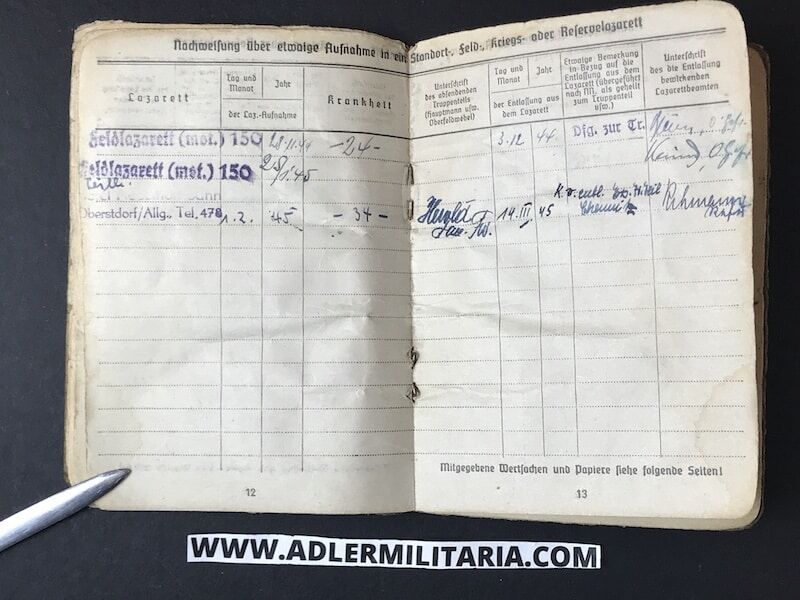 Nachweisung über etwaige Aufnahme in ein Standort-, Feld-, Kriegs- oder Reservelazarett
Lazarett
Tag und Monat
Jahr
der Laz.-Aufnahme
Krankheit
Unterschrift
des absendenden
Truppenteils
(Hauptmann usw.
Oberfeldwebel)
Tag und
Monat
Jahr
der Entlassung aus
dem Lazarett
Etwaige Bemerkung
in Bezug auf die
Entlassung aus dem
Lazarett (übergeführt
nach NN, als geheilt
zum Truppenteil
usw.)
Unterschrift
des die Entlassung
bewirkenden
Lazarettbeamten
Feldlazarett (mot.) 150
-24-
3.12 44
Dfg. zur Tr.
Feldlazarett (mot.) 150
25/1 45
Oberstdorf/Allg., Tel. 478
1.2. 45
- 34 -
14. III 45
Mitgegebene Wertsachen und Papiere siehe folgende Seiten!
12
13
WWW.ADLERMILITARIA.COM